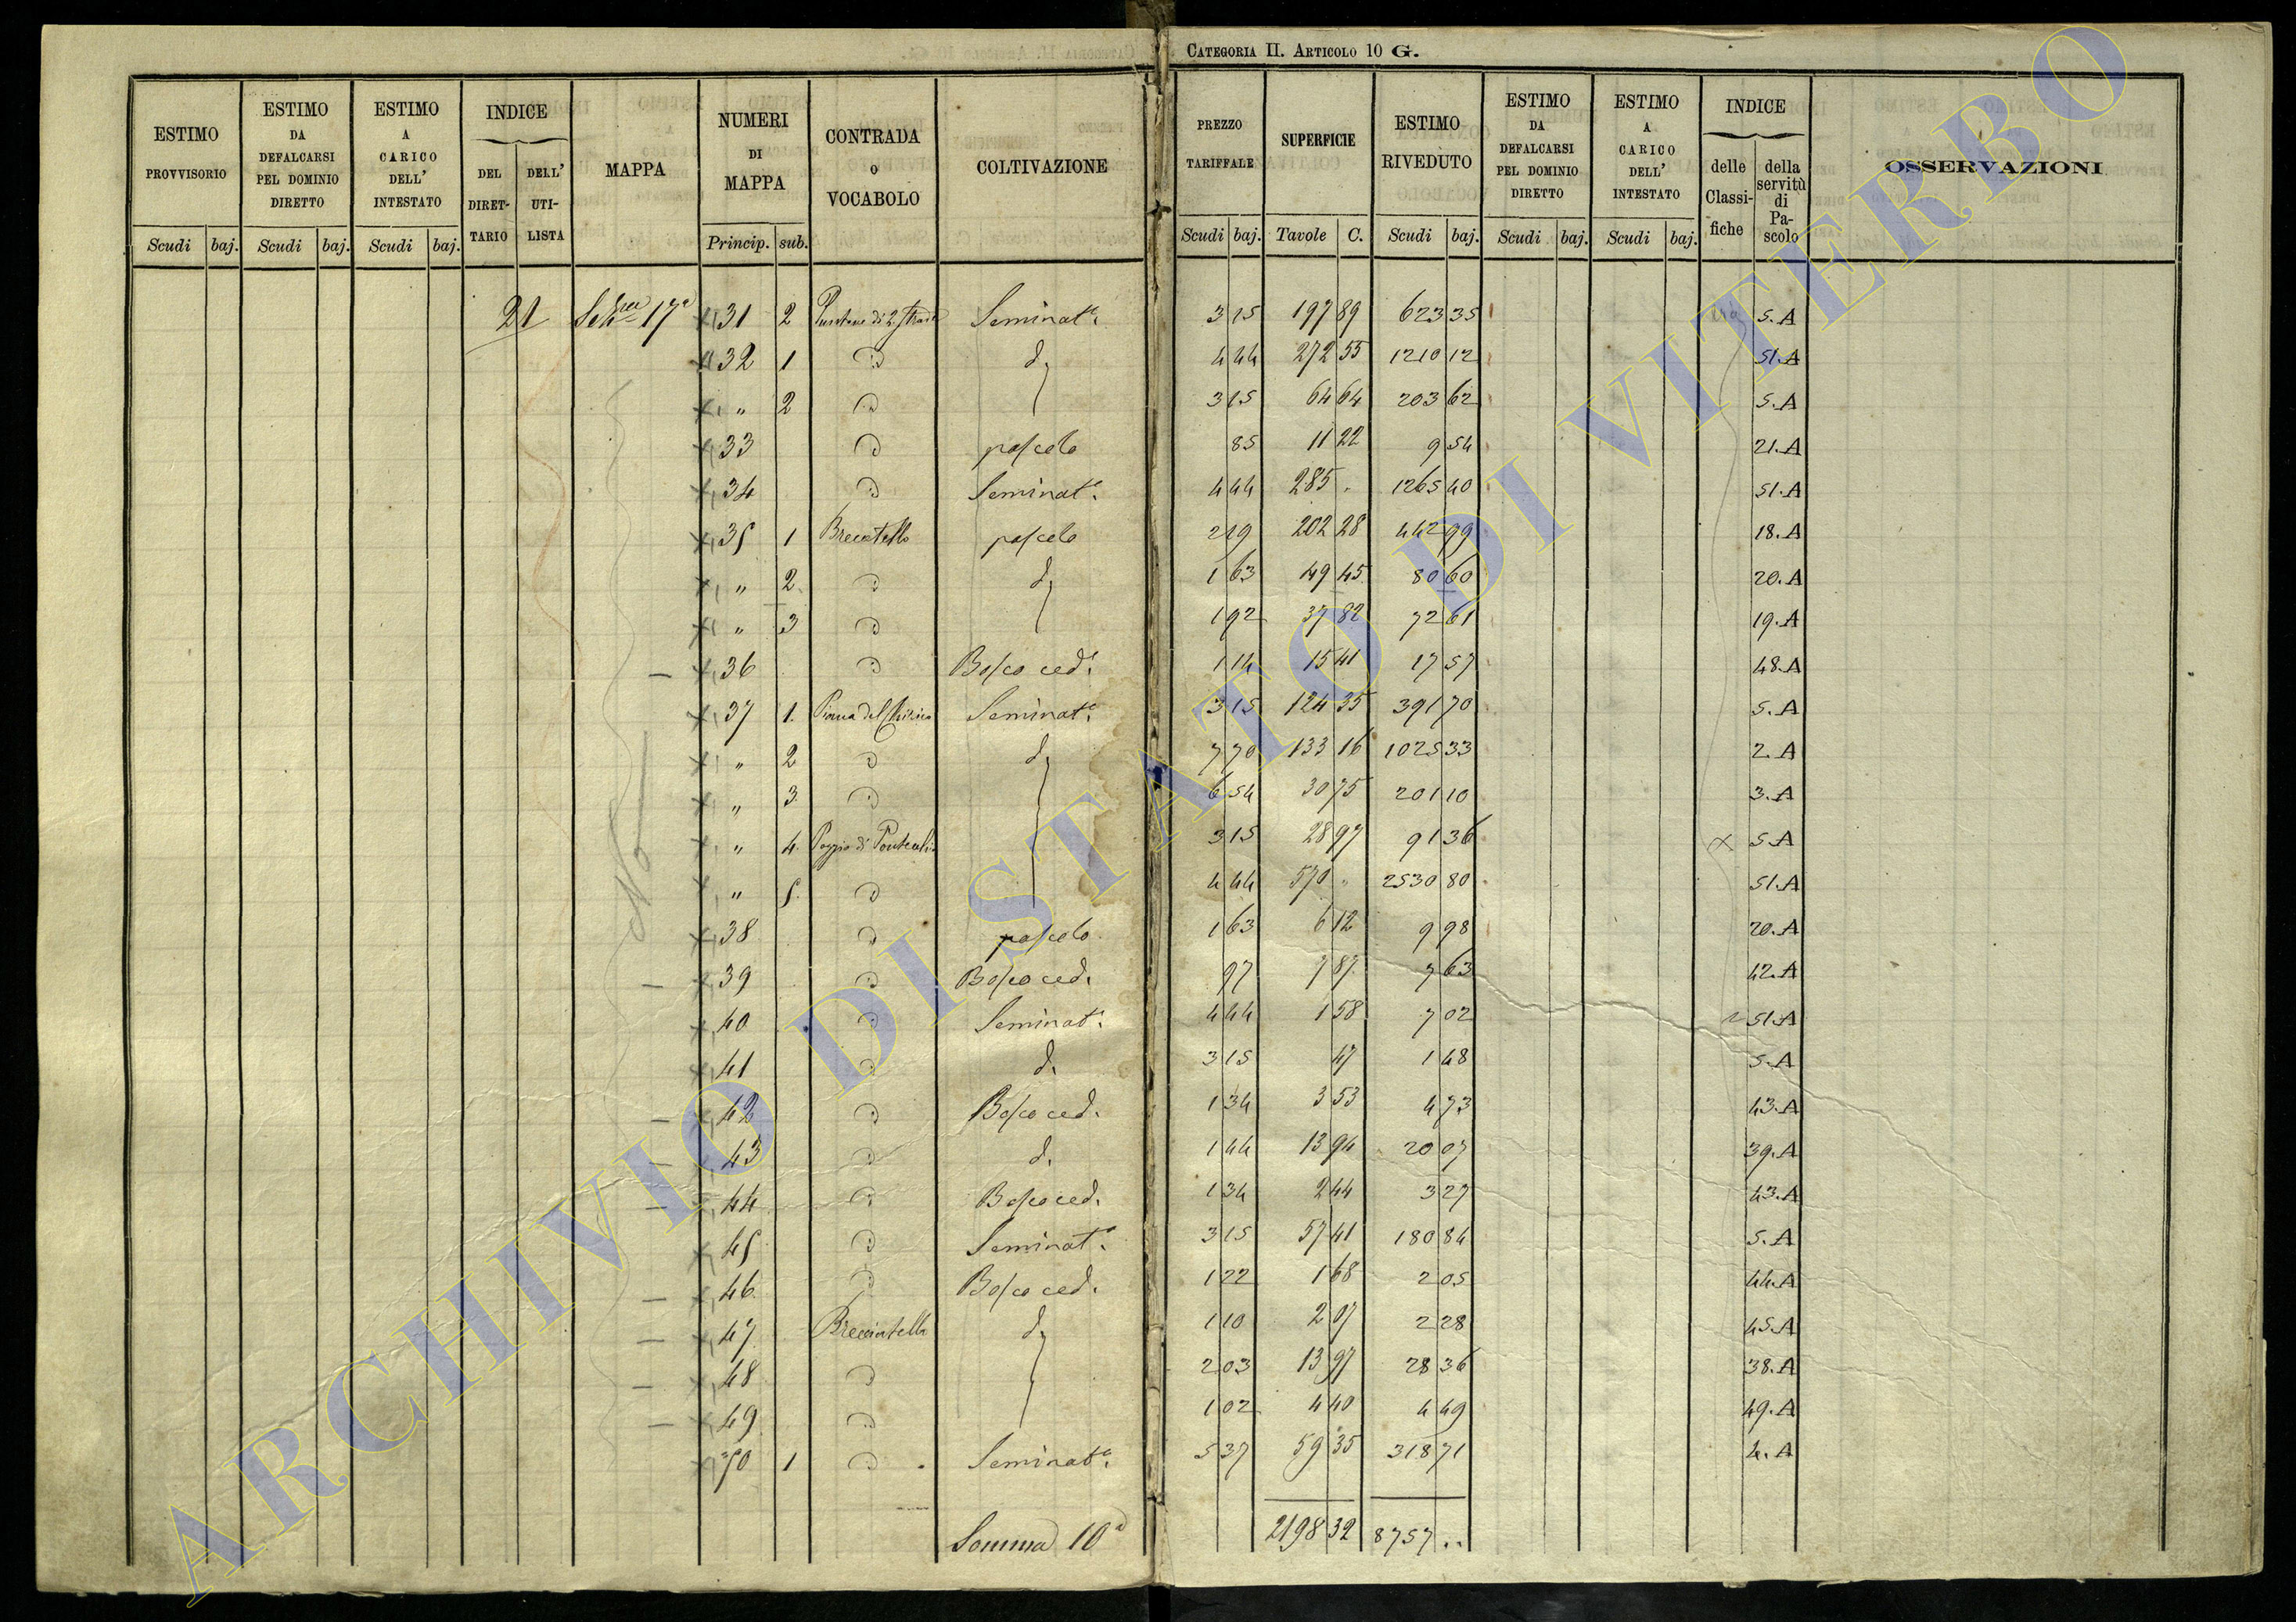 CATEGORIA II. ARTICOLO 10 G.
ESTIMO PROVVISORIO | ESTIMO DA DEFALCARSI PEL DOMINIO DIRETTO | ESTIMO A CARICO DELL' INTESTATO | INDICE DEL DIRETTARIO | DELL' UTILISTA | MAPPA | NUMERI DI MAPPA | CONTRADA O VOCABOLO | COLTIVAZIONE | PREZZO TARIFFALE | SUPERFICIE | ESTIMO RIVEDUTO | ESTIMO DA DEFALCARSI PEL DOMINIO DIRETTO | ESTIMO A CARICO DELL' INTESTATO | INDICE delle Classifiche | della servitù di Pascolo | OSSERVAZIONI
Scudi baj. Scudi baj. Scudi baj. Princip. sub. Scudi baj. Tavole C. Scudi baj. Scudi baj. Scudi baj.
21 17a 31 2 di 2 Seminato. 3 15 197 89 623 35 5.A
32 1 d. 4 44 272 55 1210 12 51.A
" 2 3 15 64 64 203 62 5.A
33 pascolo 85 11 22 9 54 21.A
34 Seminato. 4 44 285 . 1265 40 51.A
35 1 Brecciatello pascolo 2 19 202 28 442 99 18.A
" 2 d. 1 63 49 45 80 60 20.A
" 3 1 92 37 82 72 61 19.A
36 Bosco ced. 1 14 15 41 17 57 48.A
37 1. Seminato. 3 15 124 35 391 70 5.A
" 2 d. 7 70 133 16 1025 33 2.A
" 3 6 54 30 75 201 10 3.A
" 4. Poggio di 3 15 28 97 91 36 5.A
" 5. 4 44 570 . 2530 80 51.A
38 pascolo 1 63 6 12 9 98 20.A
39 Bosco ced. 97 7 87 7 63 42.A
40 Seminato. 4 44 1 58 7 02 51.A
41 d. 3 15 47 1 48 5.A
42 Bosco ced. 1 34 3 53 4 73 43.A
43 d. 1 44 13 94 20 07 39.A
44 Bosco ced. 1 34 2 44 3 27 43.A
45 Seminato. 3 15 57 41 180 84 5.A
46 Bosco ced. 1 22 1 68 2 05 44.A
47 Brecciatello d. 1 10 2 07 2 28 45.A
48 2 03 13 97 28 36 38.A
49 1 02 4 40 4 49 49.A
50 1 Seminato. 5 37 59 35 318 71 4.A
Somma 10a 2198 32 8757 ..
ARCHIVIO DI STATO DI VITERBO